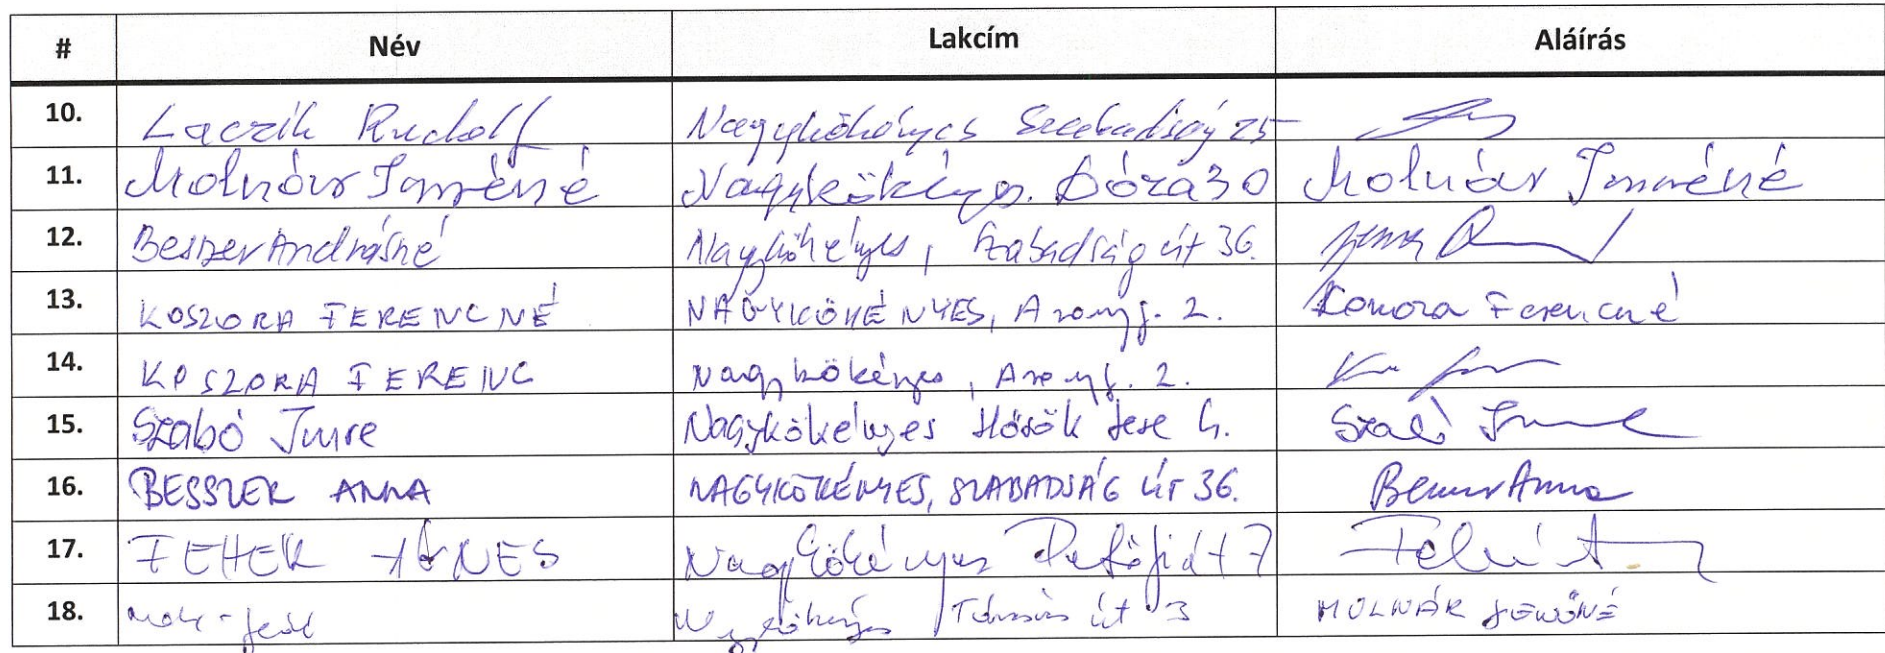 # Név Lakcím Aláírás
10. Laczik Rudolf Nagykökényes Szabadság 25
11. Molnár Imréné Nagykökényes. Dózsa 30 Molnár Imréné
12. Besszer Andrásné Nagykökényes, Szabadság út 36.
13. KOSZORA FERENCNÉ NAGYKÖKÉNYES, Arany J. 2. Koszora Ferencné
14. KOSZORA FERENC Nagykökényes, Arany J. 2.
15. Szabó Imre Nagykökényes Hősök tere 4. Szabó Imre
16. BESSZER ANNA NAGYKÖKÉNYES, SZABADSÁG ÚT 36. Besszer Anna
17. FEHÉR ÁGNES Nagykökényes Petőfi út 7 Fehér Á.
18. Nagykökényes út 3 MOLNÁR JENŐNÉ